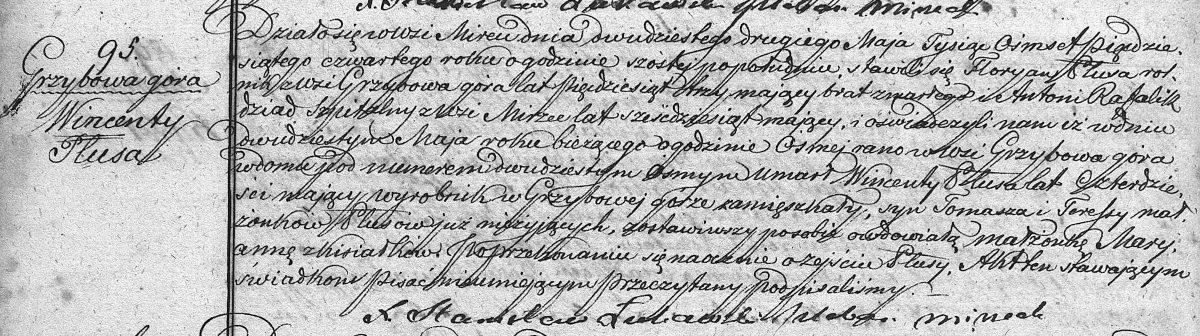 95.
Grzybowa góra
Wincenty
Plusa
Działo się wowsi Mircu dnia dwudziestego drugiego Maja Tysiąc Ośmset Pięćdzie-
siątego czwartego roku o godzinie szóstej popołudniu, stawili się Floryan Plusa rol-
nik zwsi Grzybowa góra lat Pięćdziesiąt trzy mający brat zmarłego i Antoni Rafalik
dziad szpitalny zwsi Mirzec lat sześćdziesiąt mający, i oświadczyli nam iż wdniu
dwudziestym Maja roku bieżącego o godzinie Osmej rano wewsi Grzybowa góra
wdomu pod numerem dwudziestym ósmym umarł Wincenty Plusa lat Czterdzie-
ści mający wyrobnik w Grzybowej górze zamięszkały, syn Tomasza i Teressy mał-
żonków Plusów już nieżyjących, zostawiwszy posobie owdowiałą małżonkę Mary-
annę z
Poprzekonaniu się naocznie o zejściu Plusy, Akt ten stawającym
świadkom pisać nieumiejącym Przeczytany podpisaliśmy.
X. Stanisław